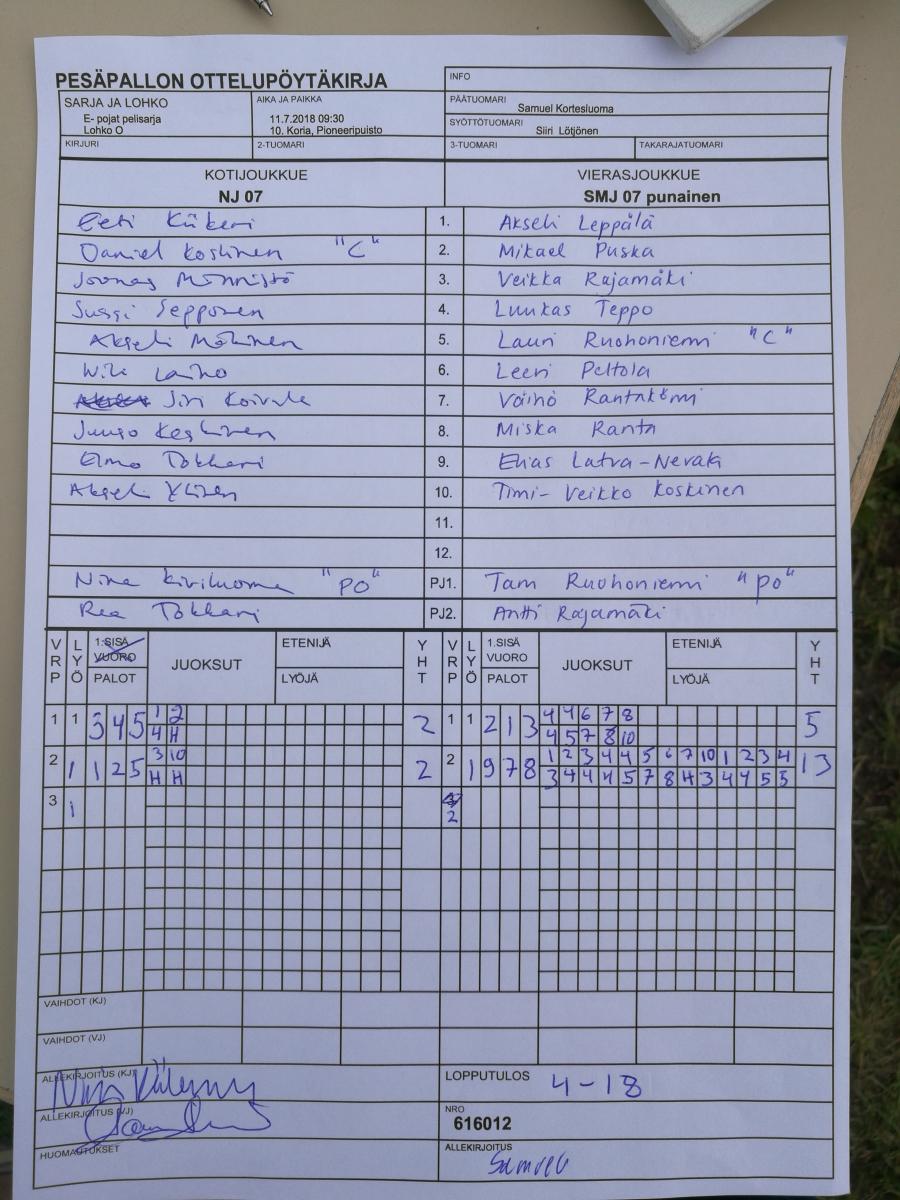 PESÄPALLON OTTELUPÖYTÄKIRJA
INFO
SARJA JA LOHKO
E- pojat pelisarja
Lohko O
AIKA JA PAIKKA
11.7.2018 09:30
10. Koria, Pioneeripuisto
PÄÄTUOMARI
Samuel Kortesluoma
SYÖTTÖTUOMARI
Siiri Lötjönen
KIRJURI
2-TUOMARI
3-TUOMARI
TAKARAJATUOMARI
KOTIJOUKKUE
NJ 07
VIERASJOUKKUE
SMJ 07 punainen
Eeti 1. Akseli Leppälä
Daniel Koskinen "C" 2. Mikael Puska
Joonas Männistö 3. Veikka Rajamäki
Sepponen 4. Luukas Teppo
Akseli 5. Lauri Ruohoniemi "C"
Laiho 6. Leevi Peltola
Jiri Koivula 7. Väinö
Juuso Keskinen 8. Miska Ranta
Elmo Tokkari 9. Elias Latva-Nevala
Akseli Ylinen 10. Timi-Veikko Koskinen
11.
12.
Nina Kiviluoma "PO" PJ1. Ruohoniemi "PO"
Rea Tokkari PJ2. Antti Rajamäki
VRP LYÖ 1.SISÄ VUORO PALOT JUOKSUT ETENIJÄ LYÖJÄ YHT VRP LYÖ 1.SISÄ VUORO PALOT JUOKSUT ETENIJÄ LYÖJÄ YHT
1 1 3 4 5 1 2 2 1 1 2 1 3 4 4 6 7 8 5
4 H 4 5 7 8 10
2 1 1 2 5 3 10 2 2 1 9 7 8 1 2 3 4 4 5 6 7 10 1 2 3 4 13
H H 3 4 4 4 5 7 8 4 3 4 4 5 5
3 1 2
VAIHDOT (KJ)
VAIHDOT (VJ)
ALLEKIRJOITUS (KJ)
LOPPUTULOS 4-18
ALLEKIRJOITUS (VJ)
NRO
616012
HUOMAUTUKSET
ALLEKIRJOITUS
Samuel